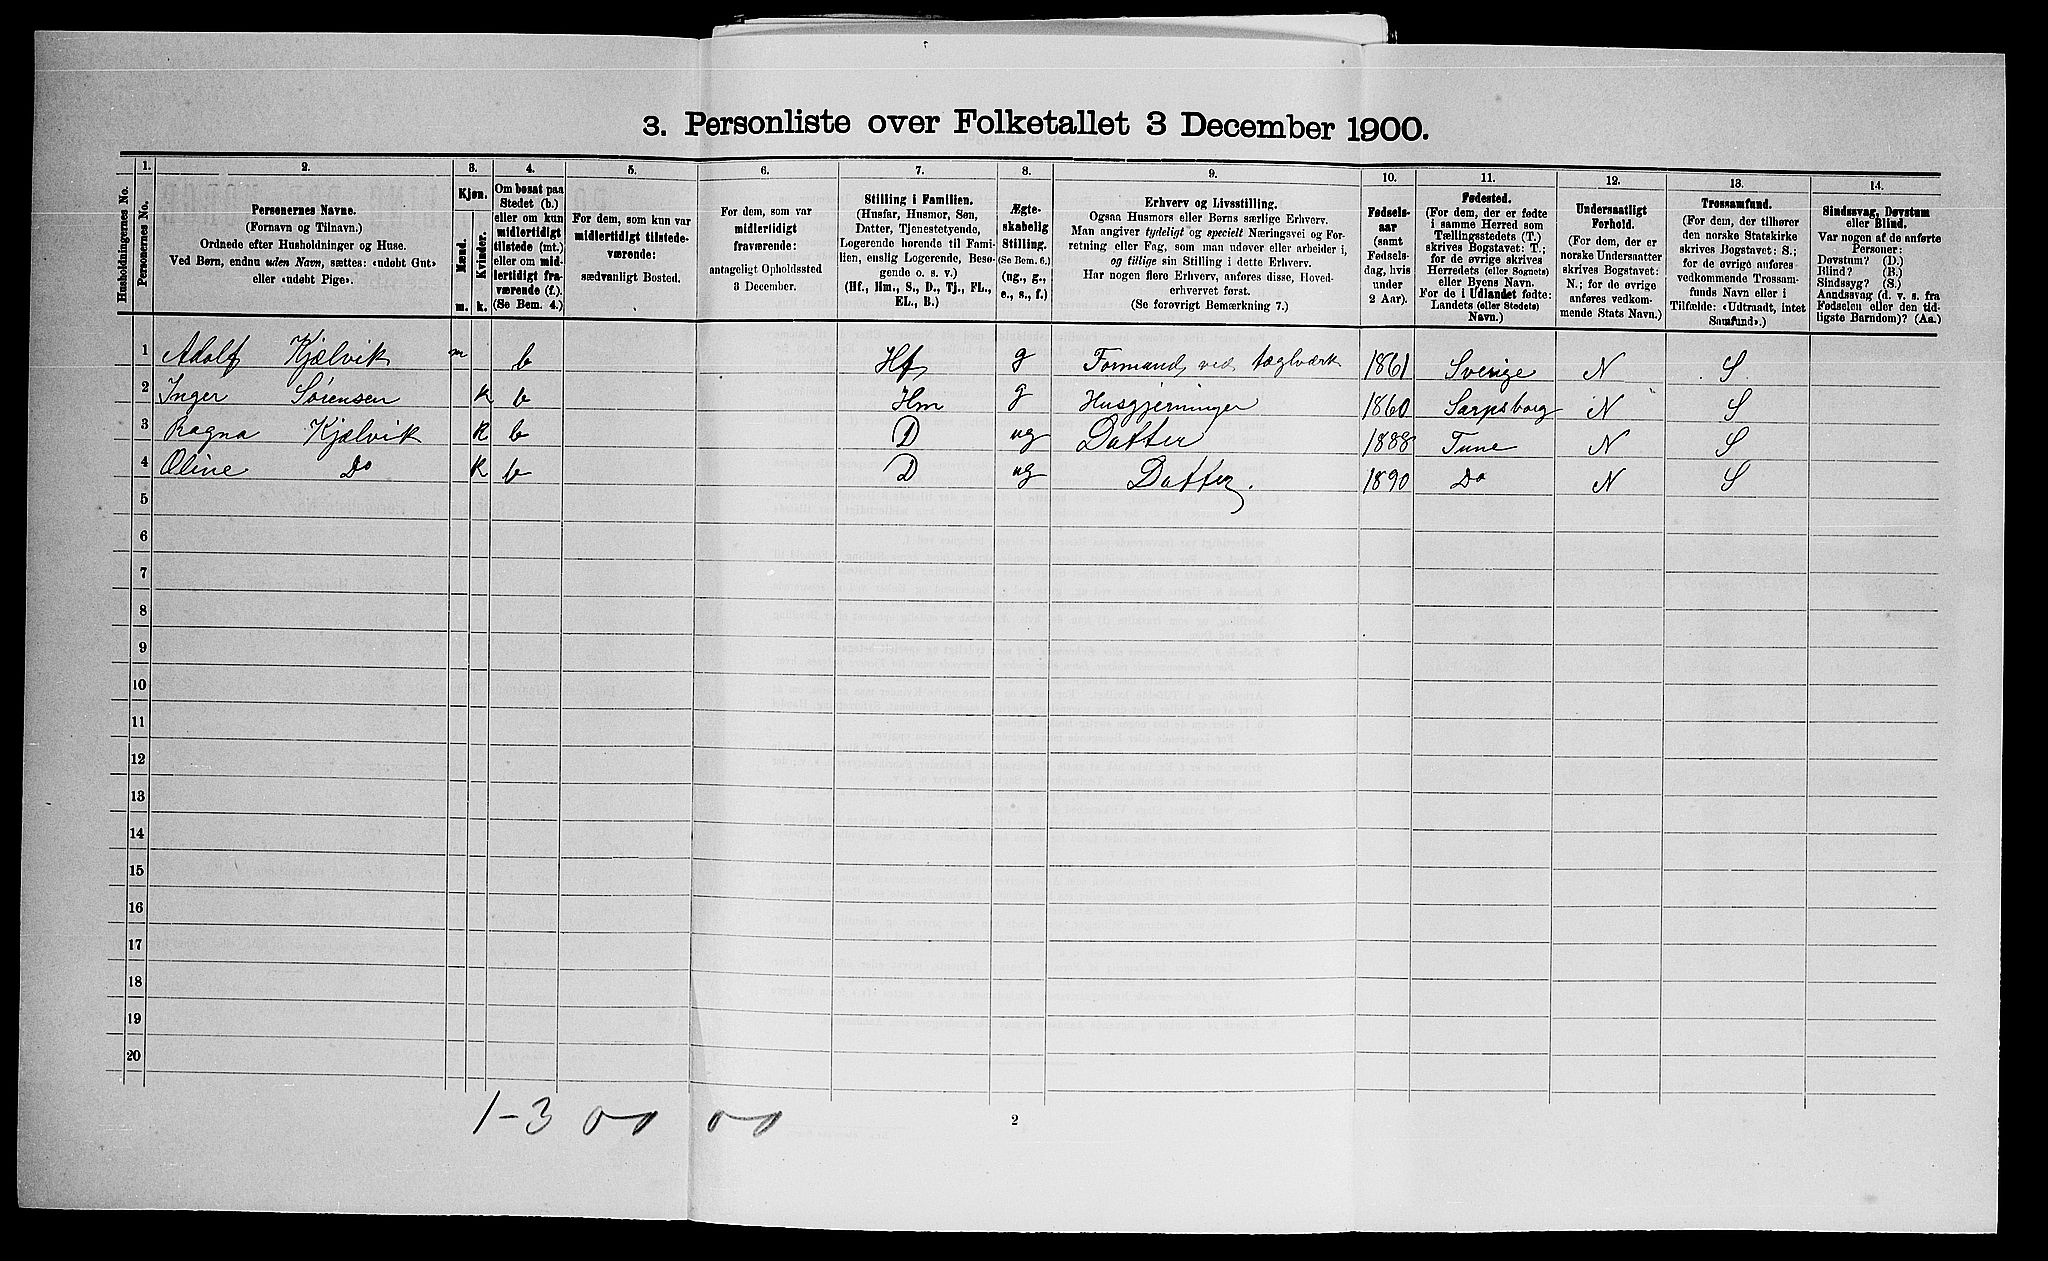 3. Personliste over Folketallet 3 December 1900.
Husholdningernes No.
1.
Personernes No.
2.
Personernes Navne.
(Fornavn og Tilnavn.)
Ordnede efter Husholdninger og Huse.
Ved Børn, endnu uden Navn, sættes: «udøbt Gut»
eller «udøbt Pige».
3.
Kjøn.
Mænd.
Kvinder.
m. k.
4.
Om bosat paa
Stedet (b.)
eller om kun
midlertidigt
tilstede (mt.)
eller om mid-
lertidigt fra-
værende (f.)
(Se Bem. 4.)
5.
For dem, som kun var
midlertidigt tilstede-
værende:
sædvanligt Bosted.
6.
For dem, som var
midlertidigt
fraværende:
antageligt Opholdssted
3 December.
7.
Stilling i Familien.
(Husfar, Husmor, Søn,
Datter, Tjenestetyende,
Logerende hørende til Fami-
lien, enslig Logerende, Besø-
gende o. s. v.)
(Hf., Hm., S., D., Tj., FL.,
EL., B.)
8.
Ægte-
skabelig
Stilling.
(Se Bem. 6.)
(ug., g.,
e., s., f.)
9.
Erhverv og Livsstilling.
Ogsaa Husmors eller Børns særlige Erhverv.
Man angiver tydeligt og specielt Næringsvei og For-
retning eller Fag, som man udøver eller arbeider i,
og tillige sin Stilling i dette Erhverv.
Har nogen flere Erhverv, anføres disse, Hoved-
erhvervet først.
(Se forøvrigt Bemærkning 7.)
10.
Fødsels-
aar
(samt
Fødsels-
dag, hvis
under
2 Aar).
11.
Fødested.
(For dem, der er fødte
i samme Herred som
Tællingsstedets (T.)
skrives Bogstavet: T.;
for de øvrige skrives
Herredets (eller Sognets)
eller Byens Navn.
For de i Udlandet fødte:
Landets (eller Stedets)
Navn.)
12.
Undersaatligt
Forhold.
(For dem, der er
norske Undersaatter
skrives Bogstavet:
N.; for de øvrige
anføres vedkom-
mende Stats Navn.)
13.
Trossamfund.
(For dem, der tilhører
den norske Statskirke
skrives Bogstavet: S.;
for de øvrige anføres
vedkommende Trossam-
funds Navn eller i
Tilfælde: «Udtraadt, intet
Samfund».)
14.
Sindssvag, Døvstum
eller Blind.
Var nogen af de anførte
Personer:
Døvstum? (D.)
Blind? (B.)
Sindssyg? (S.)
Aandssvag (d. v. s. fra
Fødselen eller den tid-
ligste Barndom)? (Aa.)
1 Adolf Kjølvik m b Hf g Formand ved teglværk 1861 Sverige N S
2 Inger Sørensen k b Hm g Husgjerninger 1860 Sarpsborg N S
3 Ragna Kjølvik k b D ug Datter 1888 Tune N S
4 Oline Do k b D ug Datter. 1890 Do N S
5
6
7
8
9
10
11
12
13
14
15
16
17
18
19
20
1-3
2